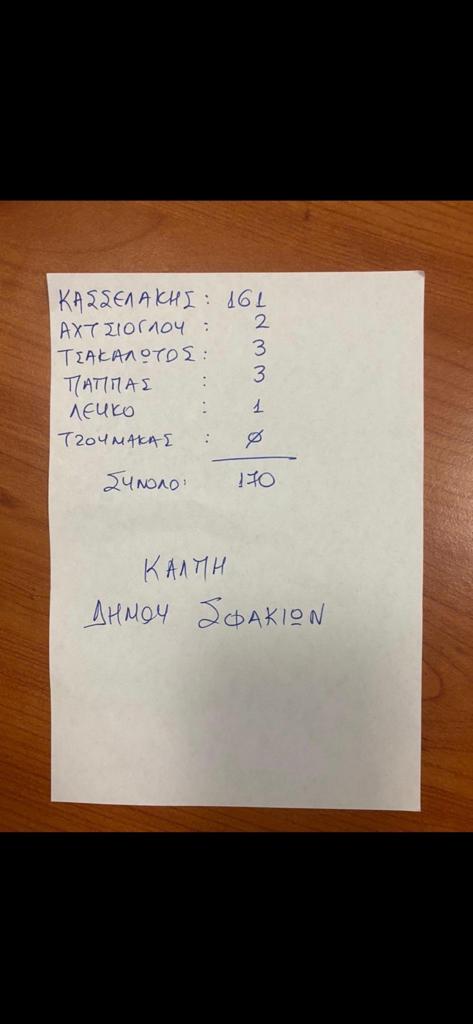 ΚΑΣΣΕΛΑΚΗΣ: 161
ΑΧΤΣΙΟΓΛΟΥ: 2
ΤΣΑΚΑΛΩΤΟΣ: 3
ΠΑΠΠΑΣ: 3
ΛΕΥΚΟ: 1
ΤΖΟΥΜΑΚΑΣ: Ø
ΣΥΝΟΛΟ: 170
ΚΑΛΠΗ
ΔΗΜΟΥ ΣΦΑΚΙΩΝ